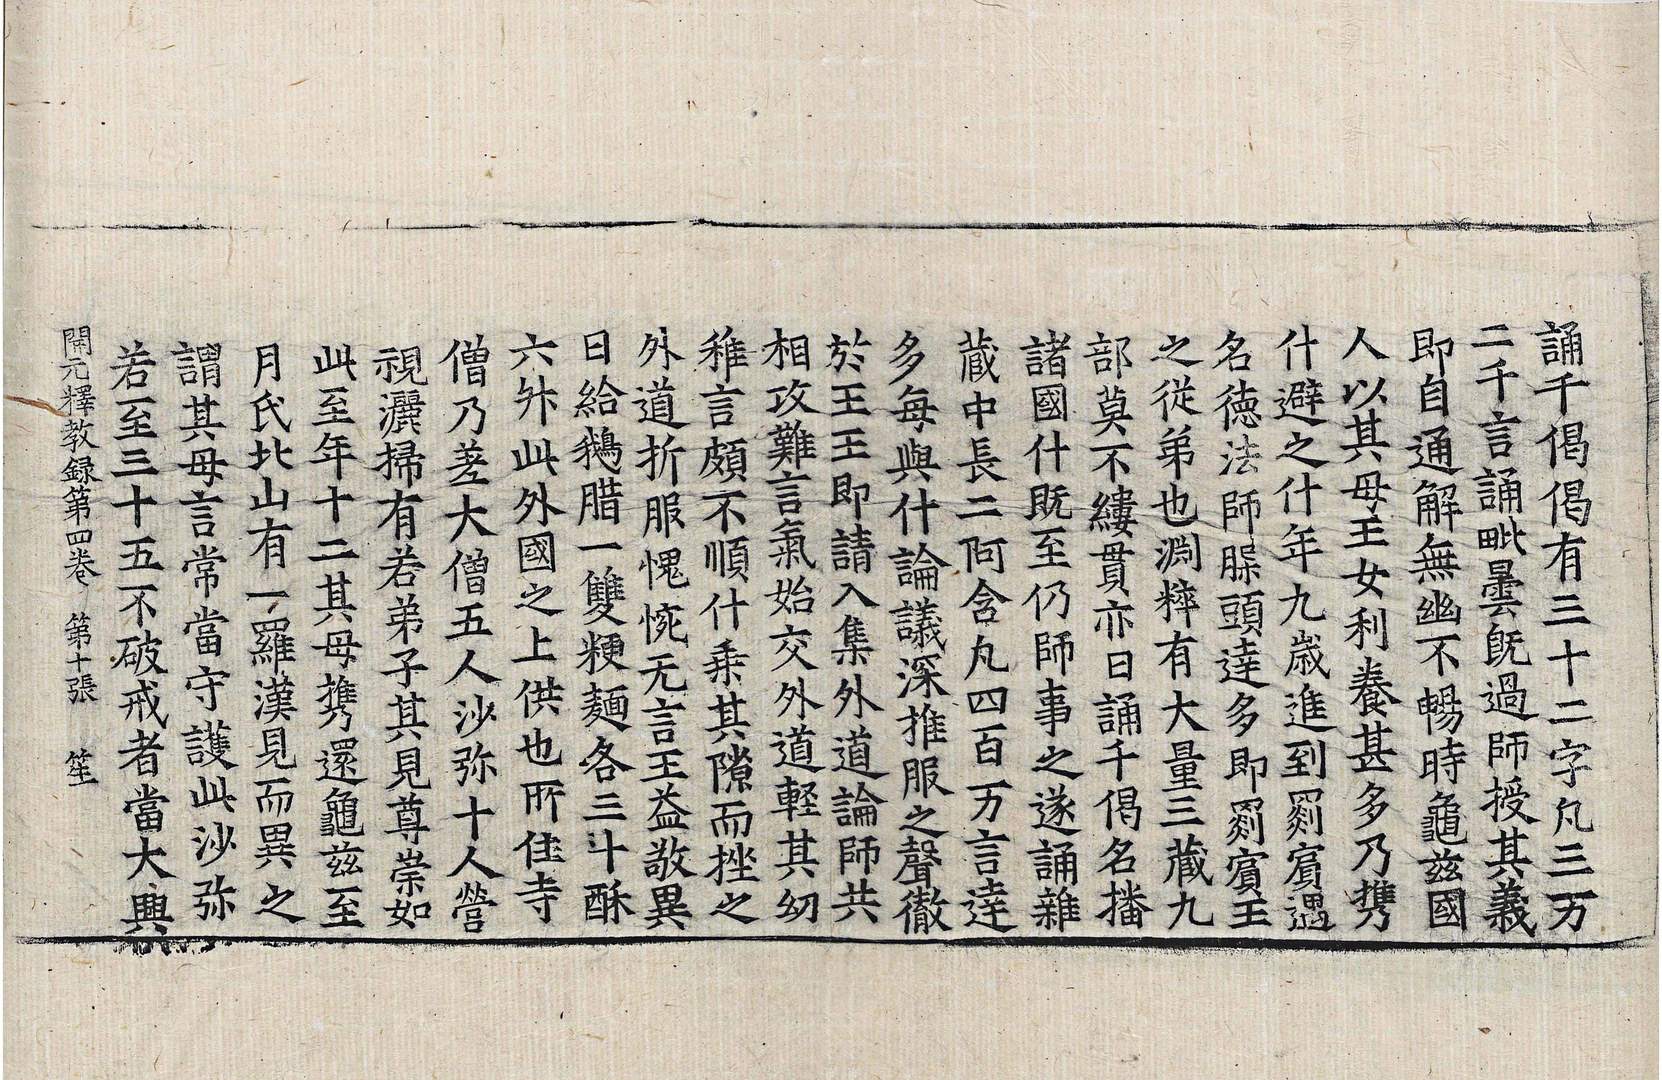 誦千偈偈有三十二字凡三万
二千言誦毗曇旣過師授其義
即自通解無幽不暢時龜兹國
人以其母王女利養甚多乃攜
什避之什年九歲進到罽賓遇
名徳法師䐑頭逹多即罽賓王
之從弟也淵粹有大量三藏九
部莫不縷貫亦日誦千偈名播
諸國什既至仍師事之遂誦雜
藏中長二阿含凡四百万言逹
多每與什論議深推服之聲徹
於王王即請入集外道論師共
相攻難言氣始交外道軽其㓜
稚言頗不順什乗其隙而挫之
外道折服愧惋无言王益敬異
日給鵝腊一雙粳麺各三斗酥
六升此外國之上供也所住寺
僧乃差大僧五人沙弥十人營
視灑掃有若弟子其見尊崇如
此至年十二其母攜還龜兹至
月氏北山有一羅漢見而異之
謂其母言常當守護此沙弥
若至三十五不破戒者當大興
開元釋教録第四卷 第十張 笙